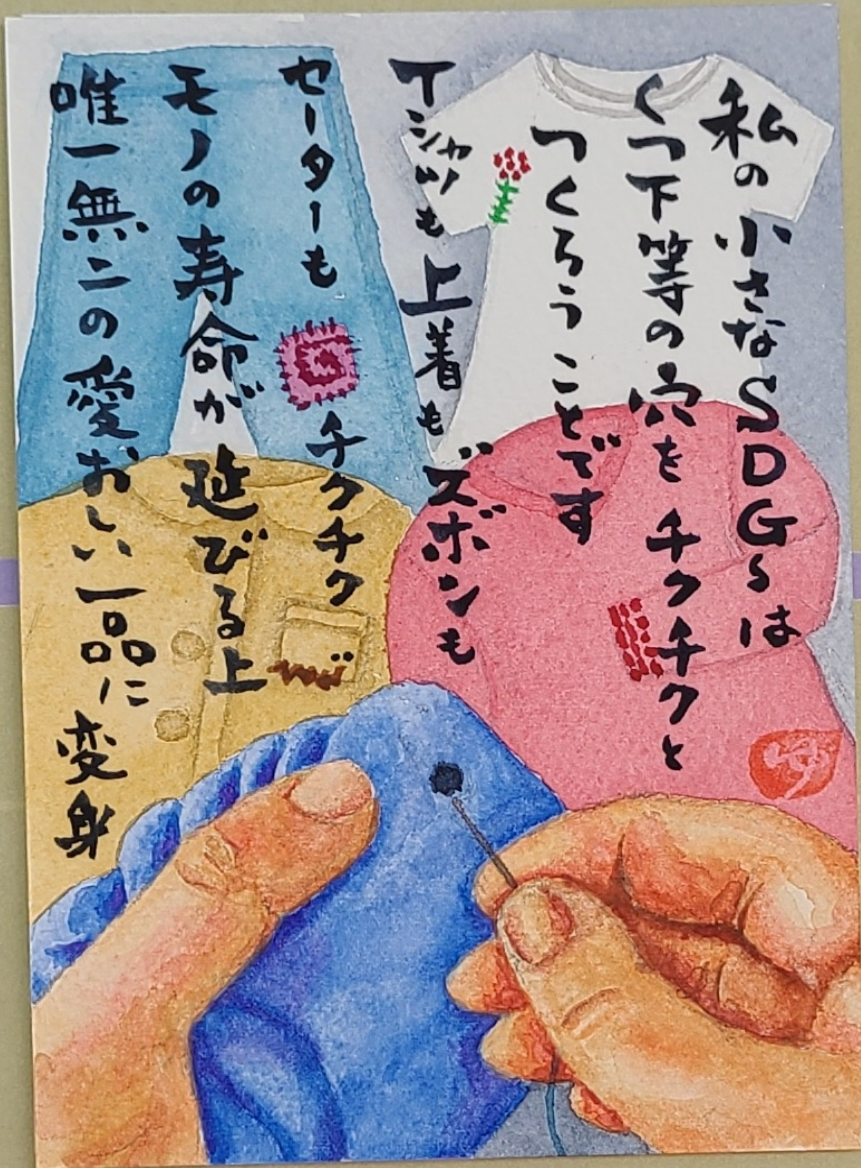 私の小さなSDGsは
くつ下等の穴をチクチクと
つくろうことです
Tシャツも上着もズボンも
セーターもチクチク
モノの寿命が延びる上
唯一無二の愛おしい一品に変身